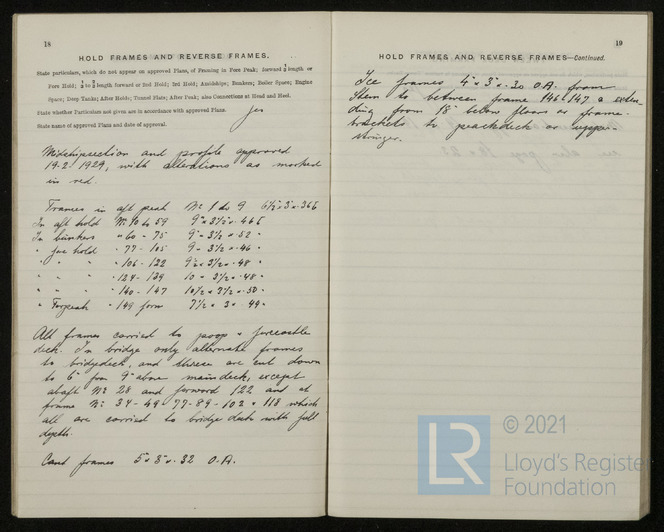 18
HOLD FRAMES AND REVERSE FRAMES.
State particulars, which do not appear on approved Plans, of Framing in Fore Peak; forward 1/5 length or
Fore Hold; 1/5 to 2/5 length forward or 2nd Hold; 3rd Hold; Amidships; Bunkers; Boiler Space; Engine
Space; Deep Tanks; After Holds; Tunnel Flats; After Peak; also Connections at Head and Heel.
State whether Particulars not given are in accordance with approved Plans. Yes
State name of approved Plans and date of approval.
Midshipsection and profile approved
19-2 1929, with alterations as marked
in red.
Frames in aft peak Nº 1 to 9 6½"x3"x.36
In aft hold Nº 10 to 59 9"x3½"x.46
In bunkers "60 - 75 9"x3½x.52 "
" fore hold "77-105 9x3½x.46 "
" " " "106-122 9½x3½x.48 "
" " " "124-139 10x3½x.48 "
" " " "140-147 10½x3½x.50 "
" Forpeak "149 form 7½x3x.44 "
All frames carried to poop & forecastle
deck. In bridge only alternate frames
to bridgedeck, and these are cut down
to 6" from 9" above maindeck, except
abaft Nº 28 and forward 122 and at
frame Nº 34-49-77-89-102 & 118 which
all are carried to bridge deck with full
depth.
Cant frames 5"x3"x.32 O.A.
19
HOLD FRAMES AND REVERSE FRAMES—Continued.
Ice frames 4"x3"x.30 O.A. from
Stem to between frame 146-147 & exten-
ding from 18" below floors or frame-
brackets to peakdeck or upper
stringer.
© 2021
LR
Lloyd's Register
Foundation